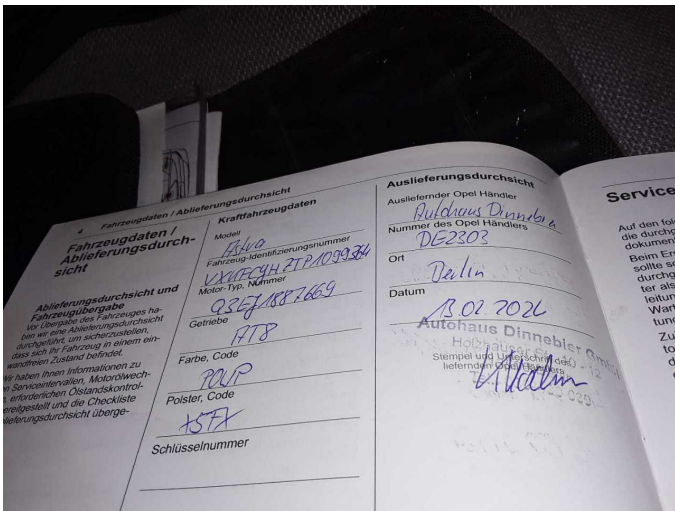 4 Fahrzeugdaten / Ablieferungsdurchsicht
Fahrzeugdaten /
Ablieferungsdurch-
sicht
Ablieferungsdurchsicht und
Fahrzeugübergabe
Vor Übergabe des Fahrzeuges ha-
ben wir eine Ablieferungsdurchsicht
durchgeführt, um sicherzustellen,
dass sich Ihr Fahrzeug in einem ein-
wandfreien Zustand befindet.
Wir haben Ihnen Informationen zu
den Serviceintervallen, Motorölwech-
erforderlichen Ölstandskontrol-
bereitgestellt und die Checkliste
Ablieferungsdurchsicht überge-
Kraftfahrzeugdaten
Modell
Astra
Fahrzeug-Identifizierungsnummer
Motor-Typ, Nummer
Getriebe
AT8
Farbe, Code
Polster, Code
Schlüsselnummer
Auslieferungsdurchsicht
Ausliefernder Opel Händler
Autohaus Dinnebier
Nummer des Opel Händlers
DE2303
Ort
Berlin
Datum
Autohaus Dinnebier GmbH
Stempel und Unterschrift des
liefernden Opel Händlers
Service
Auf den fol
die durchg
dokumen
Beim Er
sollte s
durchg
ter als
leitun
War
tung
Zu
to
d